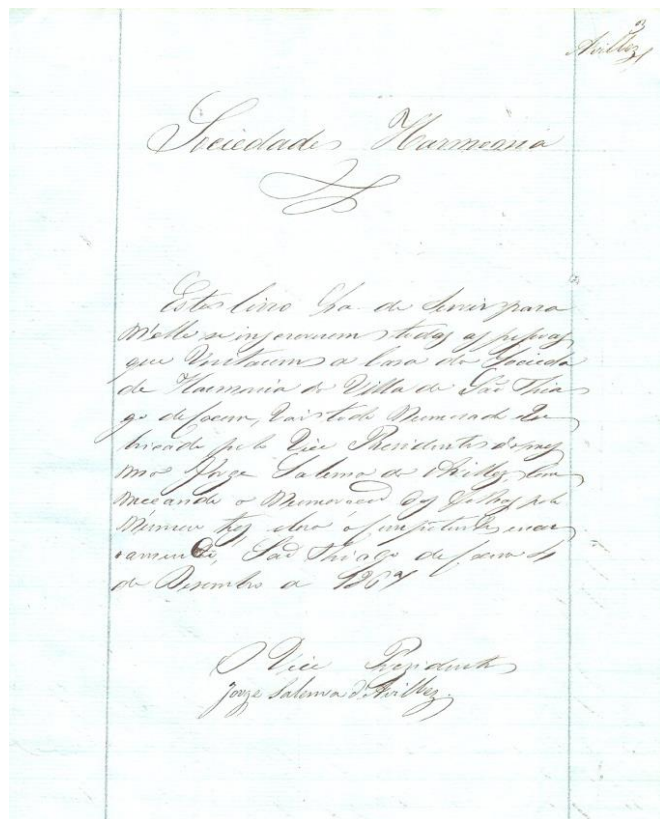 3
Avillez
Sociedade Harmonia
Este livro ha de servir para
n'elle se inscreverem todas as pessoas
que Visitarem a Casa da Socieda
de Harmonia da Villa de São Thia
go de Cacem, Vai todo Numerado e Ru
bricado pelo Vice Presidente da mes
ma Jorge Salema de Avillez, Com
meçando a Numeração das folhas pelo
Numero tres, leva o competente encer
ramento, São Thiago de Cacem
de Dezembro de
O Vice Prezidente
Jorge Salema d'Avillez